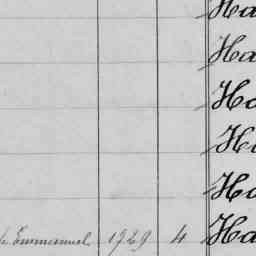 Ha
Ha
Ha
Ha
Ha
Emmanuel 1729 4 Ha